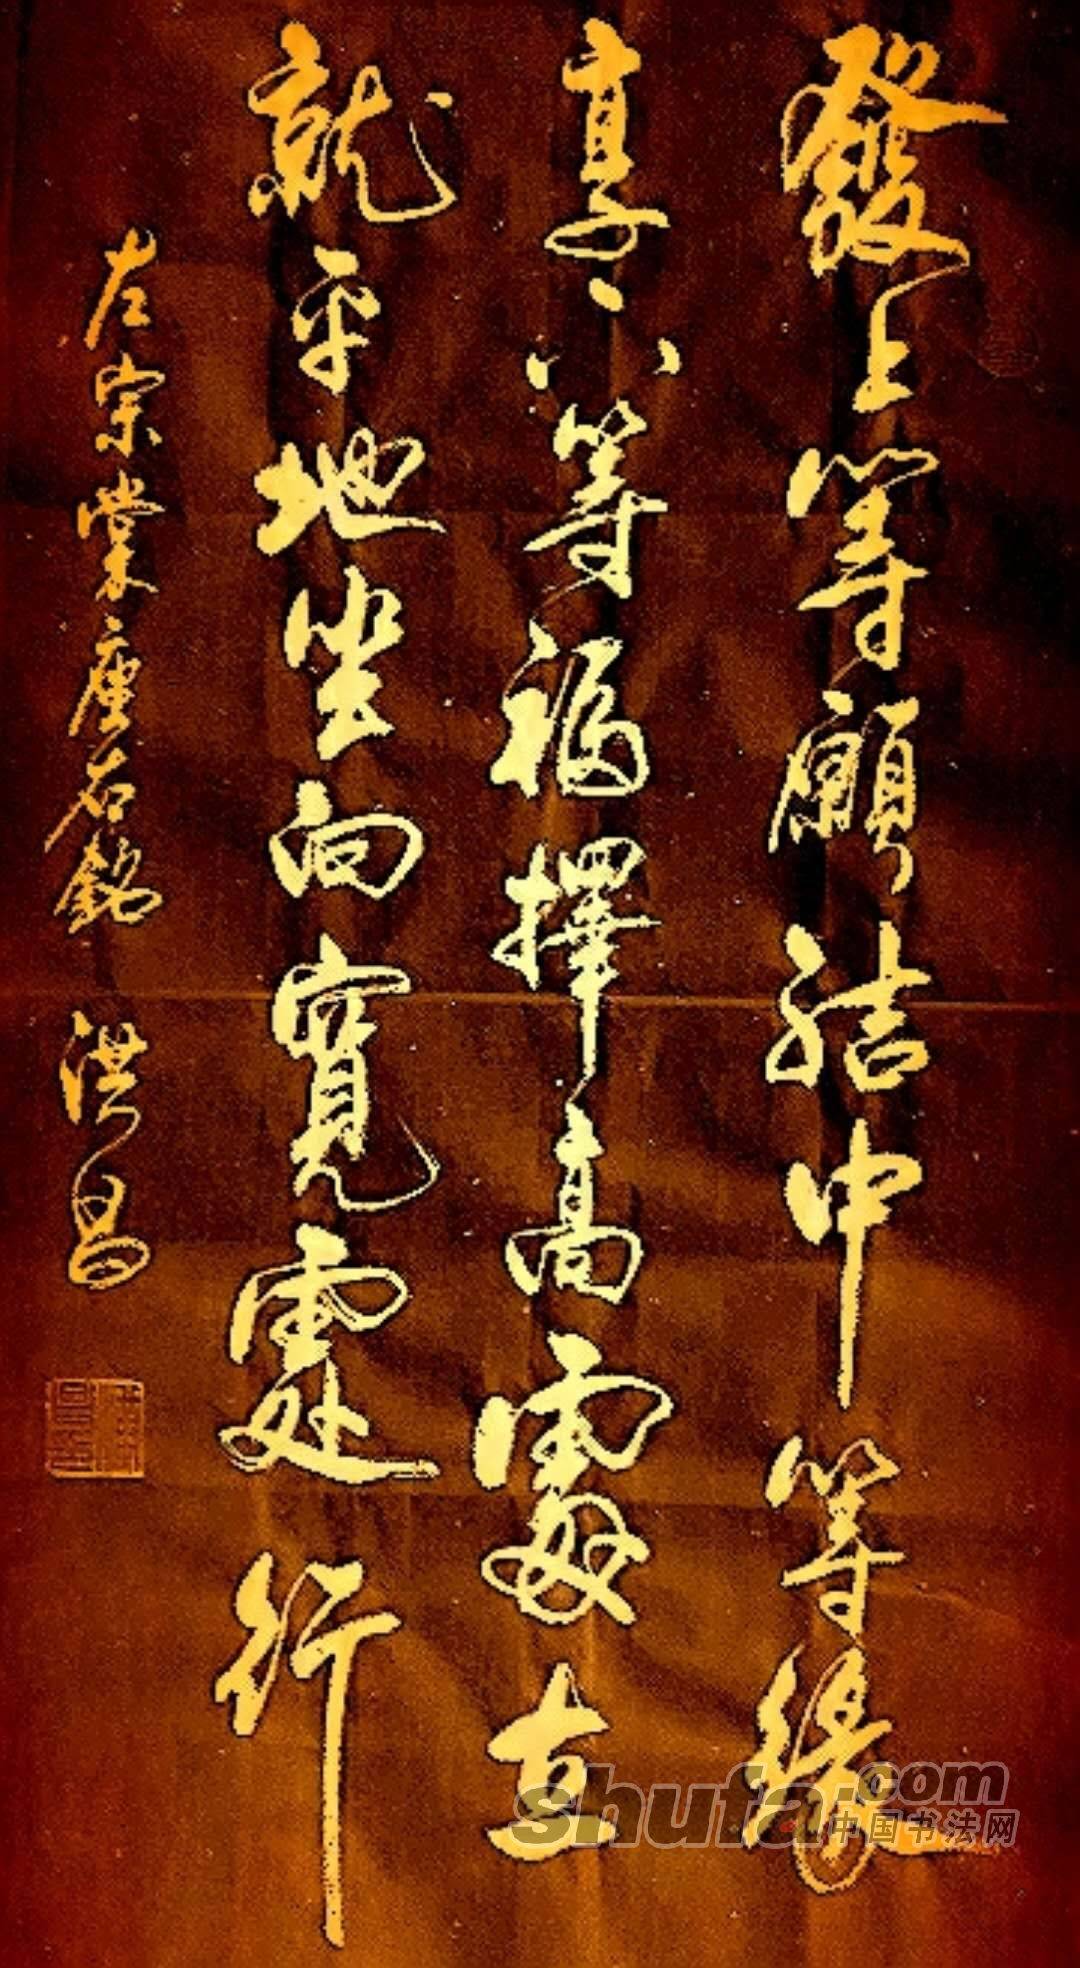 發上等願結中等緣
享下等福擇高處立
就平地坐向寬處行
左宗棠座右銘 洪昌
shufa.com
中国书法网